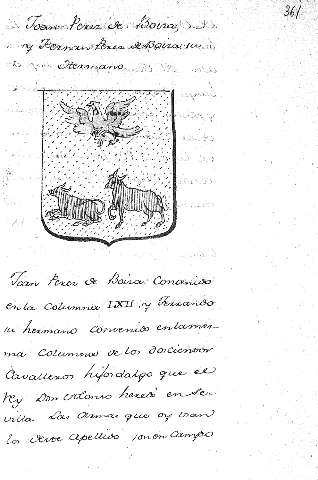 361
Joan Perez de Boiza,
y Fernan Perez de Boiza su
Hermano
Joan Perez de Boiza Contenido
en la Columna LXII y Ferrando
su hermano contenido en la mis-
ma Columna de los docientos
Cavalleros hijosdalgo que el
Rey Don Alonso heredó en Se-
villa. Las Armas que oy traen
los deste Apellido son en Campo